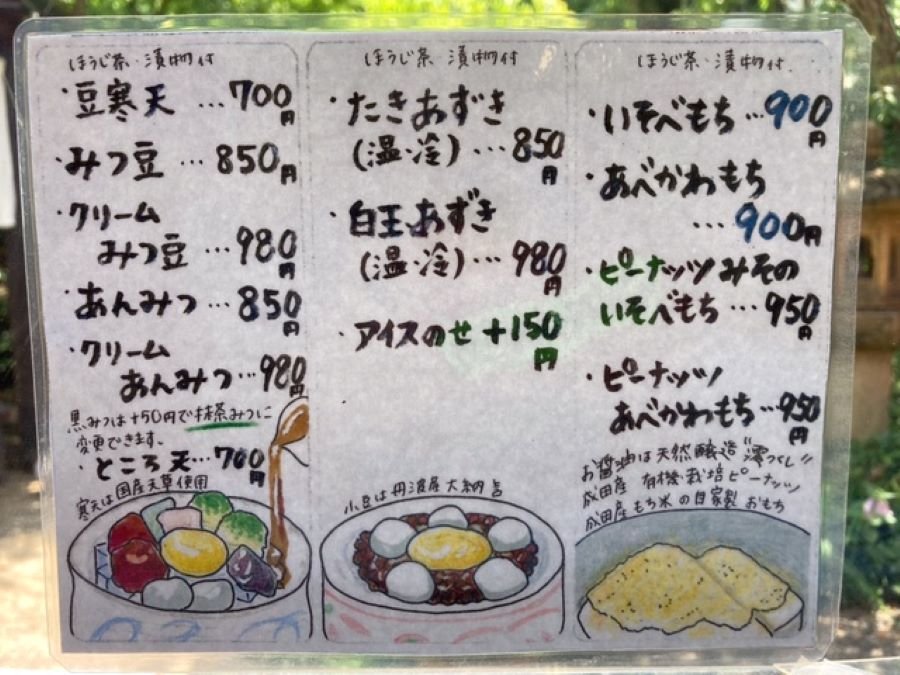 ほうじ茶・漬物付
・豆寒天…700円
・みつ豆…850円
・クリーム
みつ豆…980円
・あんみつ…850円
・クリーム
あんみつ…980円
黒みつは+50円で抹茶みつに
変更できます。
・ところ天…700円
寒天は国産天草使用
ほうじ茶・漬物付
・たきあずき
(温・冷)…850円
・白玉あずき
(温・冷)…980円
・アイスのせ+150円
小豆は丹波産大納言
ほうじ茶・漬物付.
・いそべもち…900円
・あべかわもち
…900円
・ピーナッツみその
いそべもち…950円
・ピーナッツ
あべかわもち…950円
お醤油は天然醸造"澪つくし"
成田産 有機栽培ピーナッツ
成田産もち米の自家製おもち